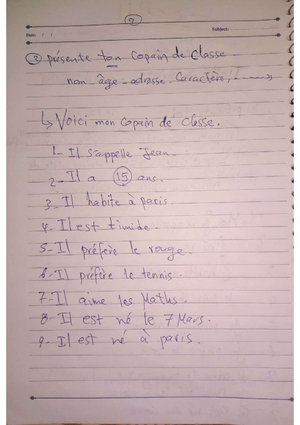 2
Date: / /
Subject:
② présente ton Copain de Classe
nom _ âge _ adresse _ Caractère, ------->
↳ Voici mon Copain de classe.
1- Il s'appelle Jean.
2- Il a 15 ans.
3- Il habite à paris.
4- Il est timide.
5- Il préfère le rouge.
6- Il préfère le tennis.
7- Il aime les Maths.
8- Il est né le 7 Mars.
9- Il est né à paris.